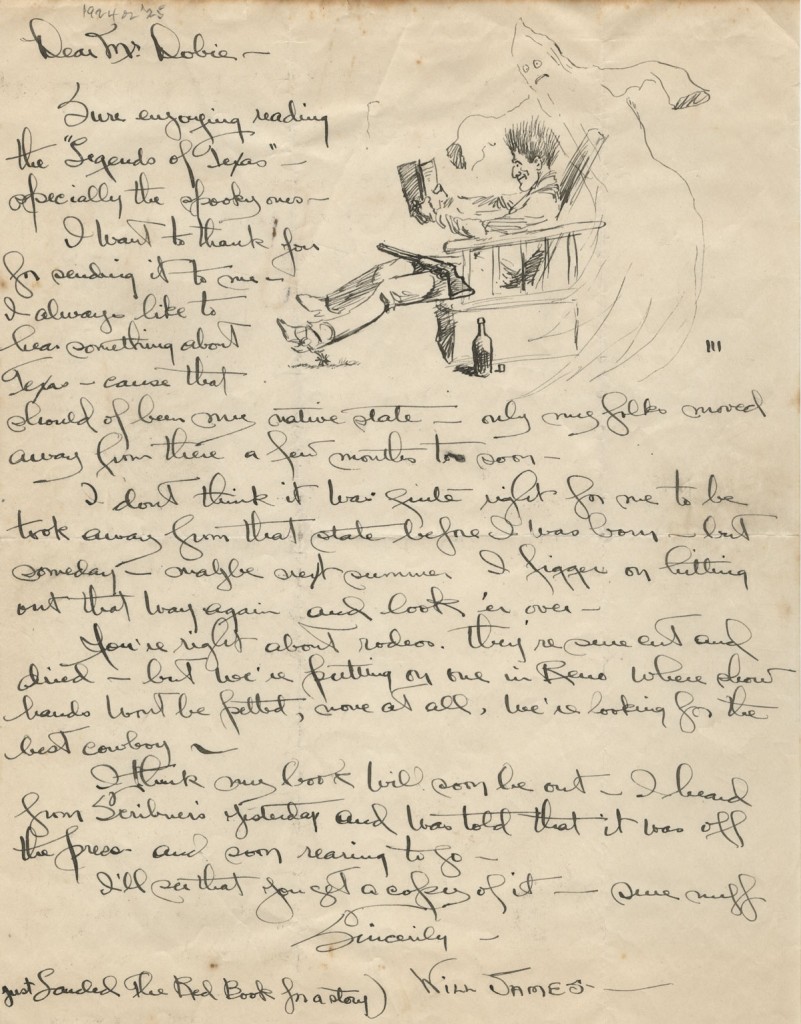 1924 or '25
Dear Mr Dobie —
Sure enjoying reading
the "Legends of Texas" —
especially the spooky ones —
I want to thank you
for sending it to me —
I always like to
hear something about
Texas — cause that
should of been my native state — only my folks moved
away from there a few months too soon —
I dont think it was quite right for me to be
took away from that state before I was born — but
someday — maybe next summer I figger on hitting
out that way again and look 'er over —
You're right about rodeos. they're sure cut and
dried — but we're putting on one in Reno where show
hands wont be petted, none at all, we're looking for the
best cowboy —
I think my book will soon be out — I heard
from Scribner's yesterday and was told that it was off
the press and soon rearing to go —
I'll see that you get a copy of it — sure nuff
Sincerily —
Will James —
just landed The Red Book for a story)